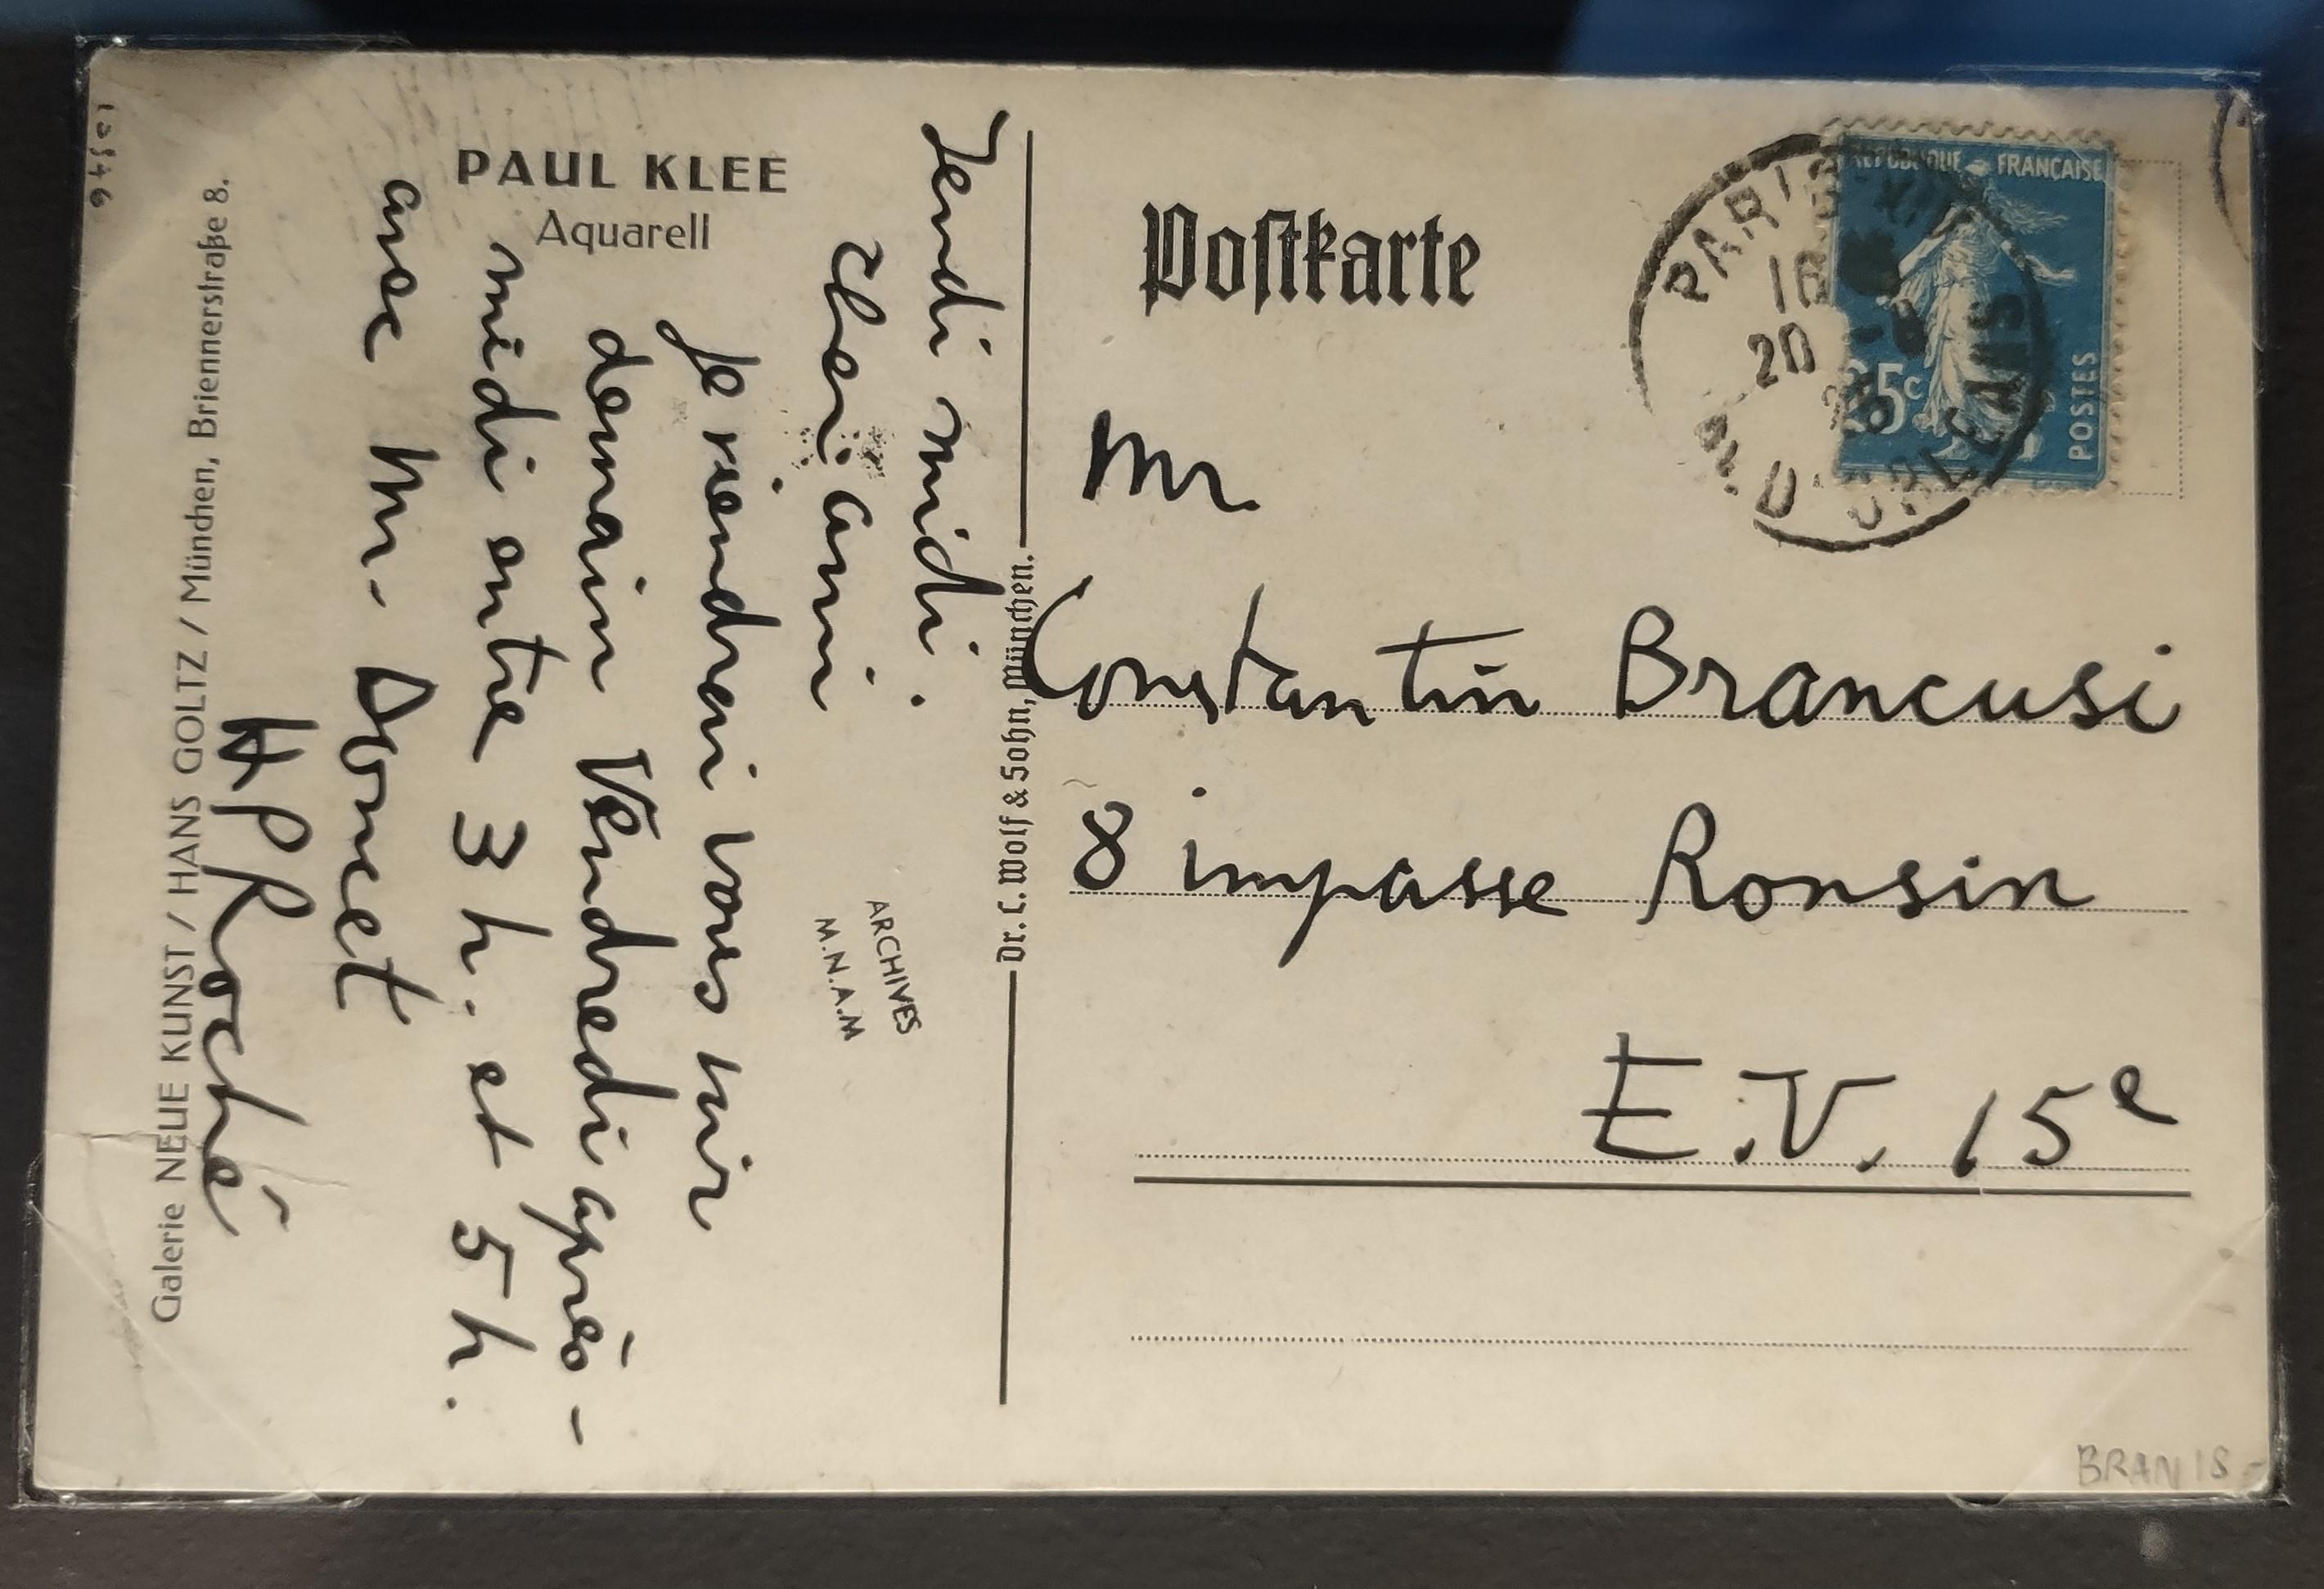 PAUL KLEE
Aquarell
Jeudi midi.
cher ami
Je viendrai vous voir
demain Vendredi après-
midi entre 3 h. et 5 h.
avec Mr. Doucet
HP Roché
Galerie NEUE KUNST / HANS GOLTZ / München, Briennerstraße 8.
ARCHIVES
M.N.A.M
Dr. C. Wolf & Sohn, München.
Postkarte
REPUBLIQUE FRANÇAISE
25c
POSTES
PARIS XIV
20
ORLEANS
Mr
Constantin Brancusi
8 impasse Ronsin
E.V. 15e
BRAN 18